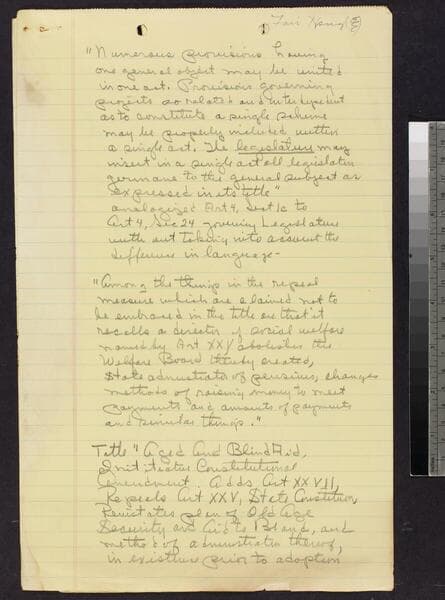 "Numerous provisions having
one general object may be united
in one act. Provisions governing
projects so related and interdependent
as to constitute a single scheme
may be properly included within
a single act. The legislature may
insert in a single act all legislation
germane to the general subject as
expressed in its title"
analogized Art 4, Sect 1c to
Art 4, Sec 24 governing Legislature
without taking into account the
difference in language-
"Among the things in the repeal
measure which are claimed not to
be embraced in the title are that it
recalls a director of social welfare
named by Art XXV abolishes the
Welfare Board thereby created,
State administrator of pensions, changes
methods of raising money to meet
payments and amounts of payments
and similar things."
Title "Aged and Blind Aid,
Initiative Constitutional
Amendment. Adds Art XXVII,
Repeals Art XXV, State Constitution,
Reinstates plan of Old Age
Security and Aid to Blind, and
method of administration thereof,
in existence prior to adoption